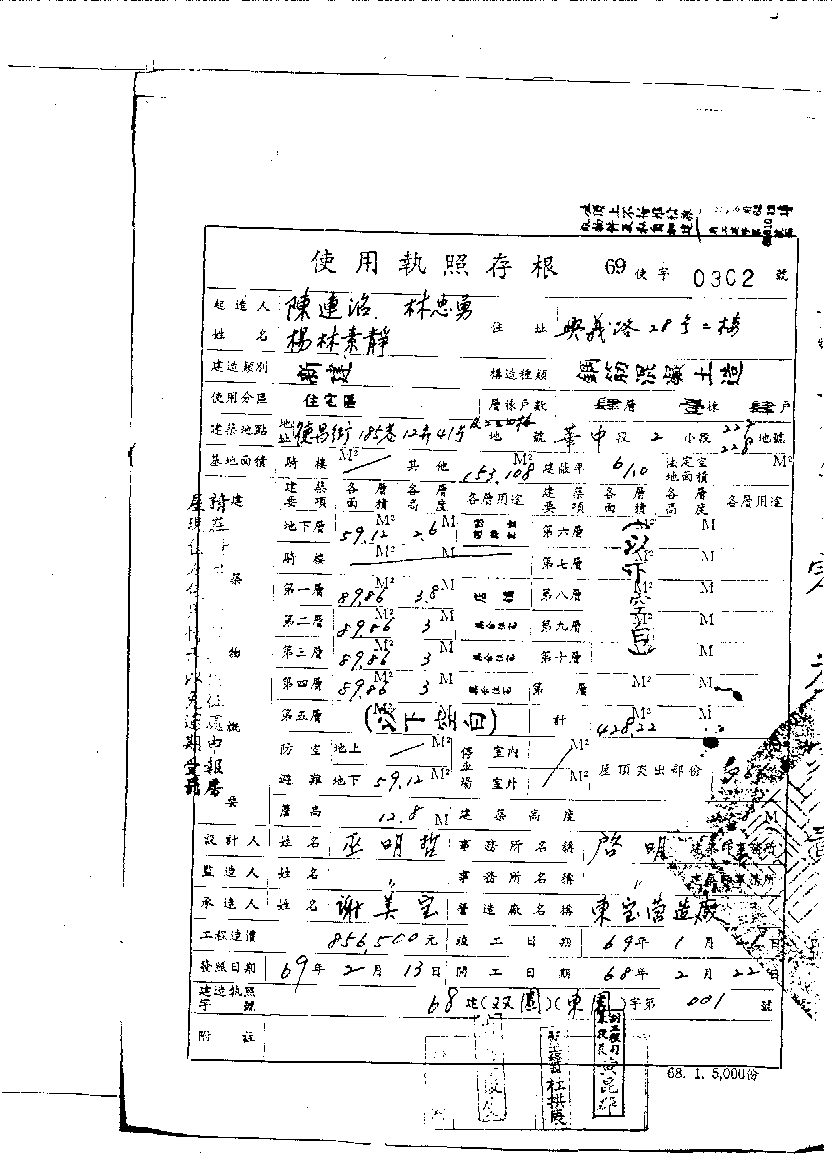 使用執照存根 69 使字 0302 號
起造人姓名 陳連治、林忠勇 楊林素靜 住址 興義路28号二樓
建造類別 新建 構造種類 鋼筋混凝土造
使用分區 住宅區 層棟戶數 肆層 壹棟 肆戶
建築地點 地址 德昌街185巷12弄41号 地號 華中段2小段 地號
基地面積 騎樓 M² 其他 153.108 M² 建蔽率 6/10 法定空地面積 M²
建築要項 各層面積 各層高度 各層用途 建築要項 各層面積 各層高度 各層用途
地下層 59.12 M² 2.6 M 第六層 M² M
騎樓 M² M 第七層 M² M
第一層 89.86 M² 3.8 M 第八層 M² M
第二層 89.86 M² 3 M 第九層 M² M
第三層 89.86 M² 3 M 第十層 M² M
第四層 89.86 M² 3 M 第 層 M² M
第五層 (以下空白) M² M 計 428.22 M² M
(以下空白)
建築物概要
防空避難 地上 M² 地下 59.12 M² 停車場 室內 M² 室外 M² 屋頂突出部份
簷高 12.8 M 建築高度 M
設計人 姓名 巫明哲 事務所名稱 啓明建築師事務所
監造人 姓名 〃 事務所名稱 〃 建築師事務所
承造人 姓名 謝美宝 營造廠名稱 東宝营造廠
工程造價 856,500元 竣工日期 69年1月 日
發照日期 69年2月13日 開工日期 68年2月22日
建造執照字號 68建(双園)(東園)字第001號
附註
杜拱辰
黃昆雄
68. 1. 5,000份